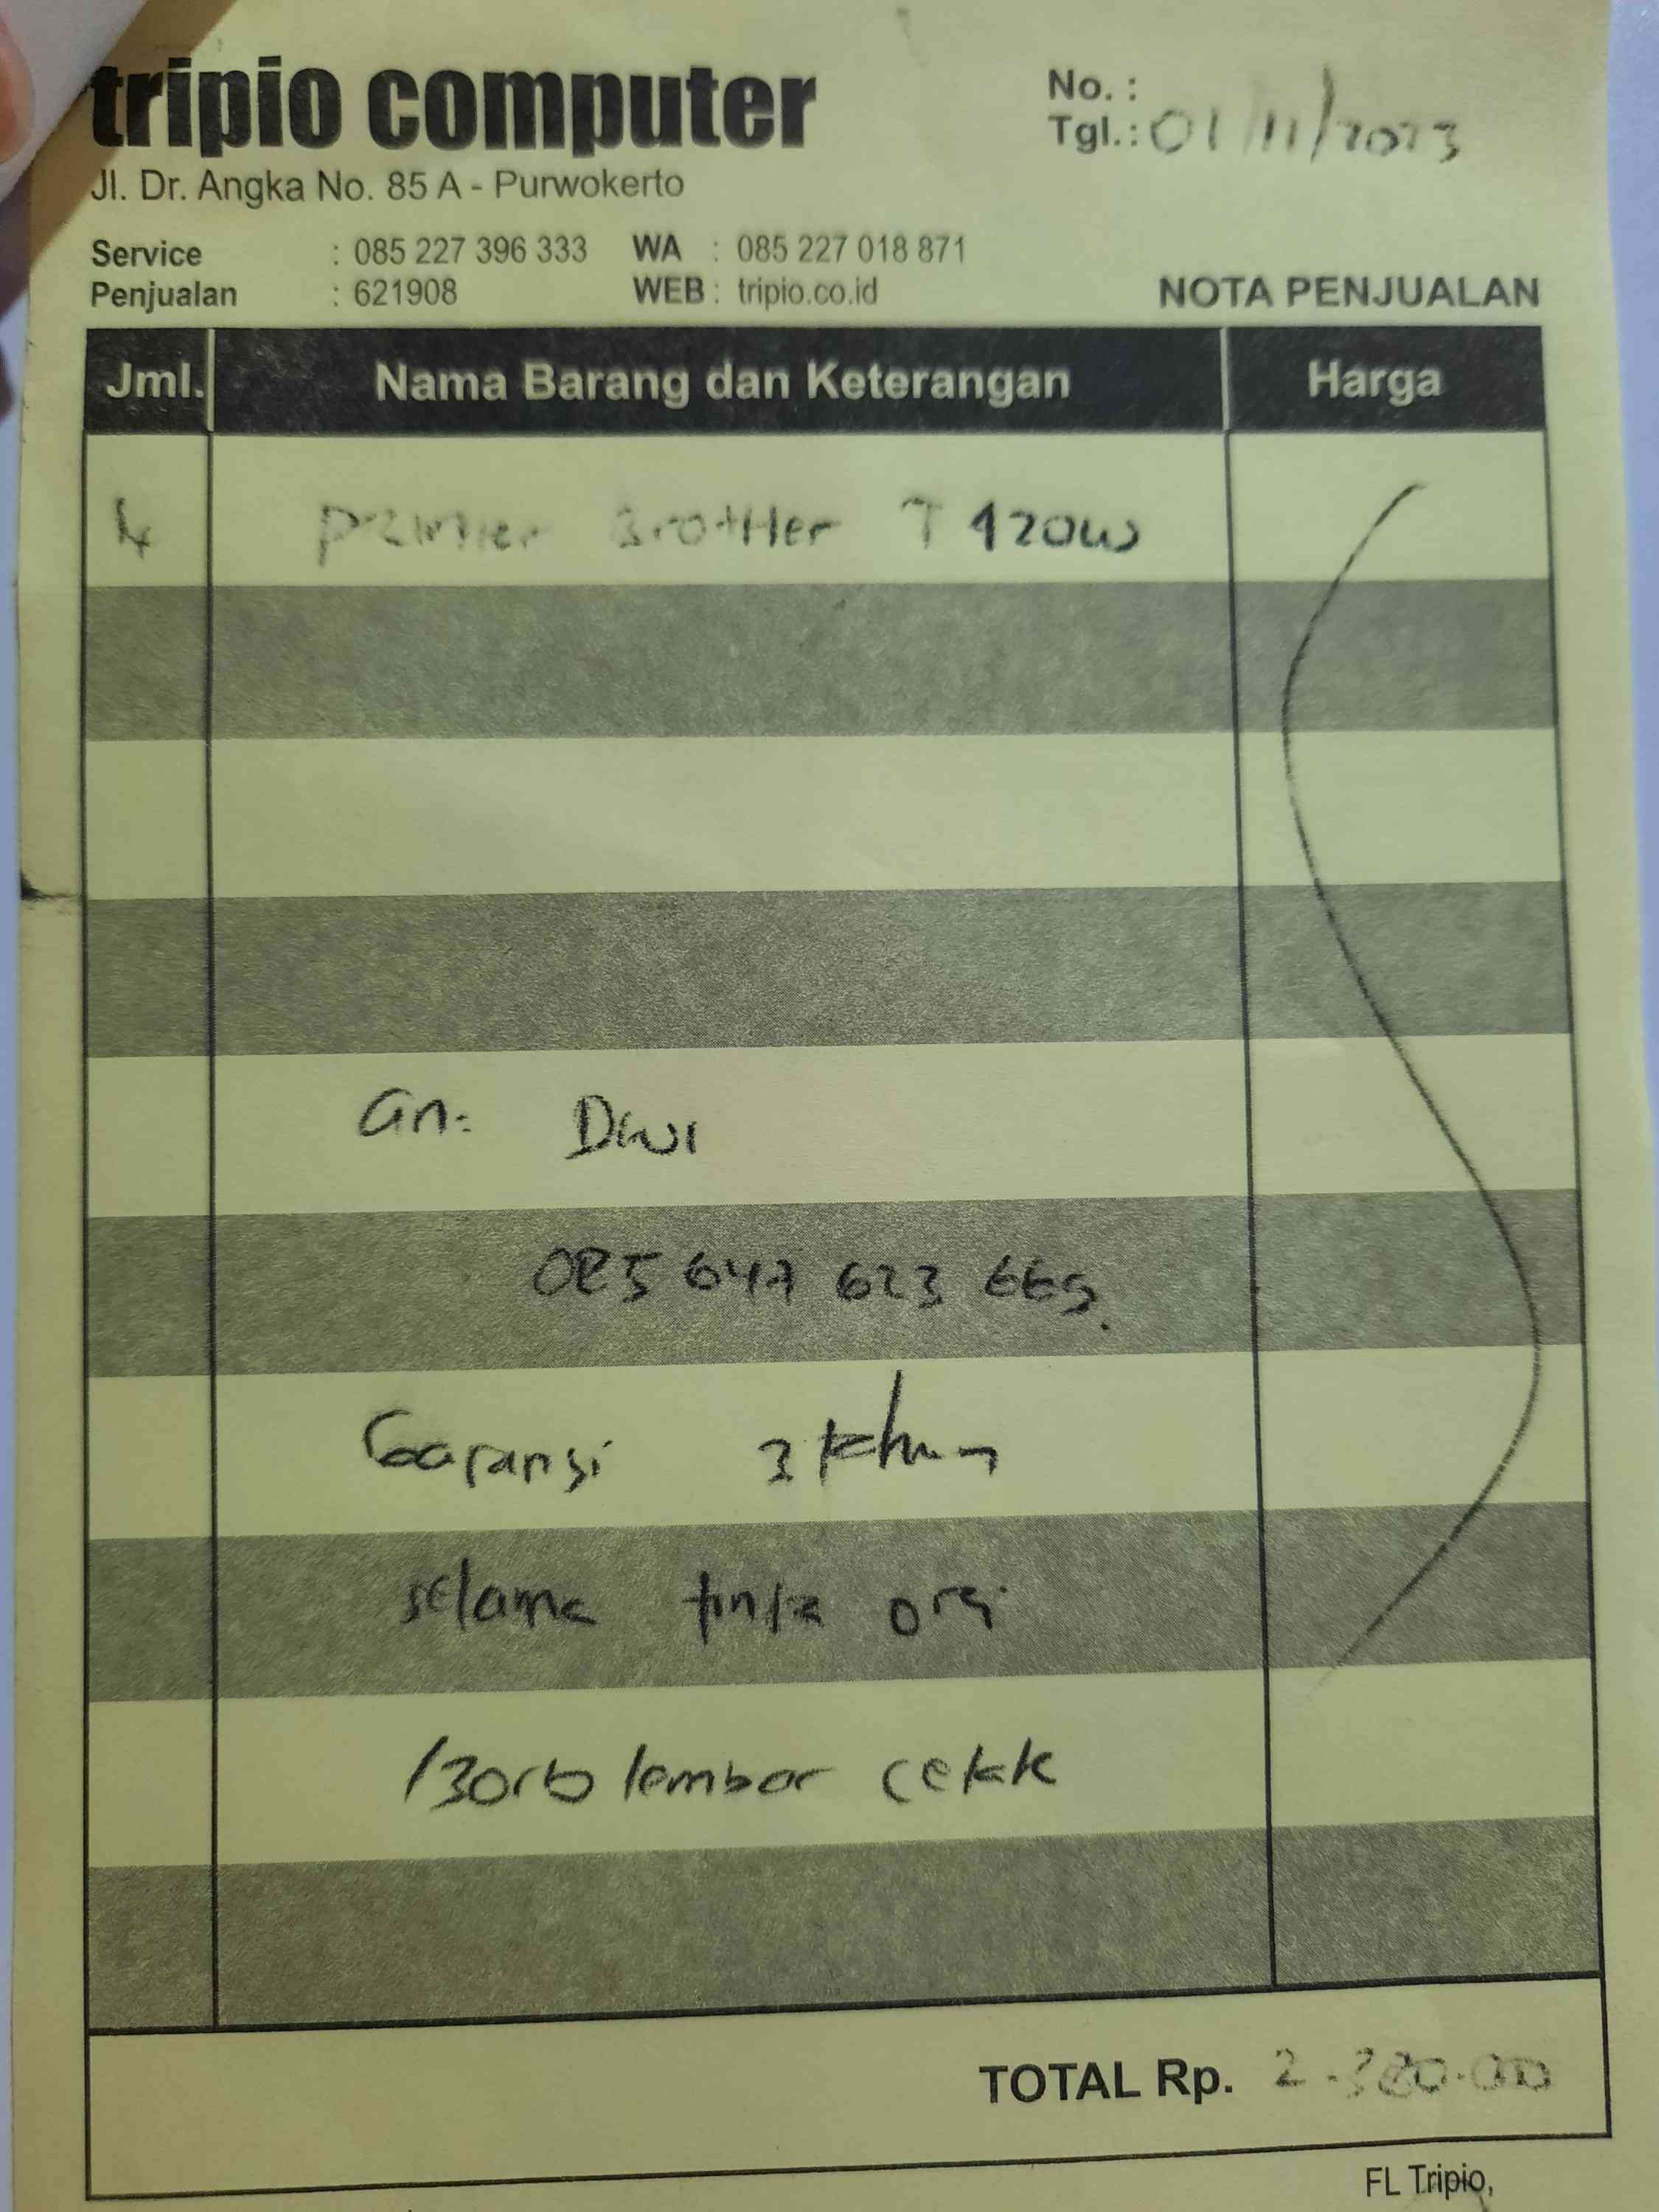 tripio computer
No. :
Tgl.: 01/11/2023
Jl. Dr. Angka No. 85 A - Purwokerto
Service : 085 227 396 333 WA : 085 227 018 871
Penjualan : 621908 WEB : tripio.co.id
NOTA PENJUALAN
Jml. Nama Barang dan Keterangan Harga
Printer Brother T 420W
an: Dwi
085 647 623 665.
Garansi 3 thun
selama tinta ori
/30rb lembar cetak
TOTAL Rp. 2.380.00
FL Tripio,